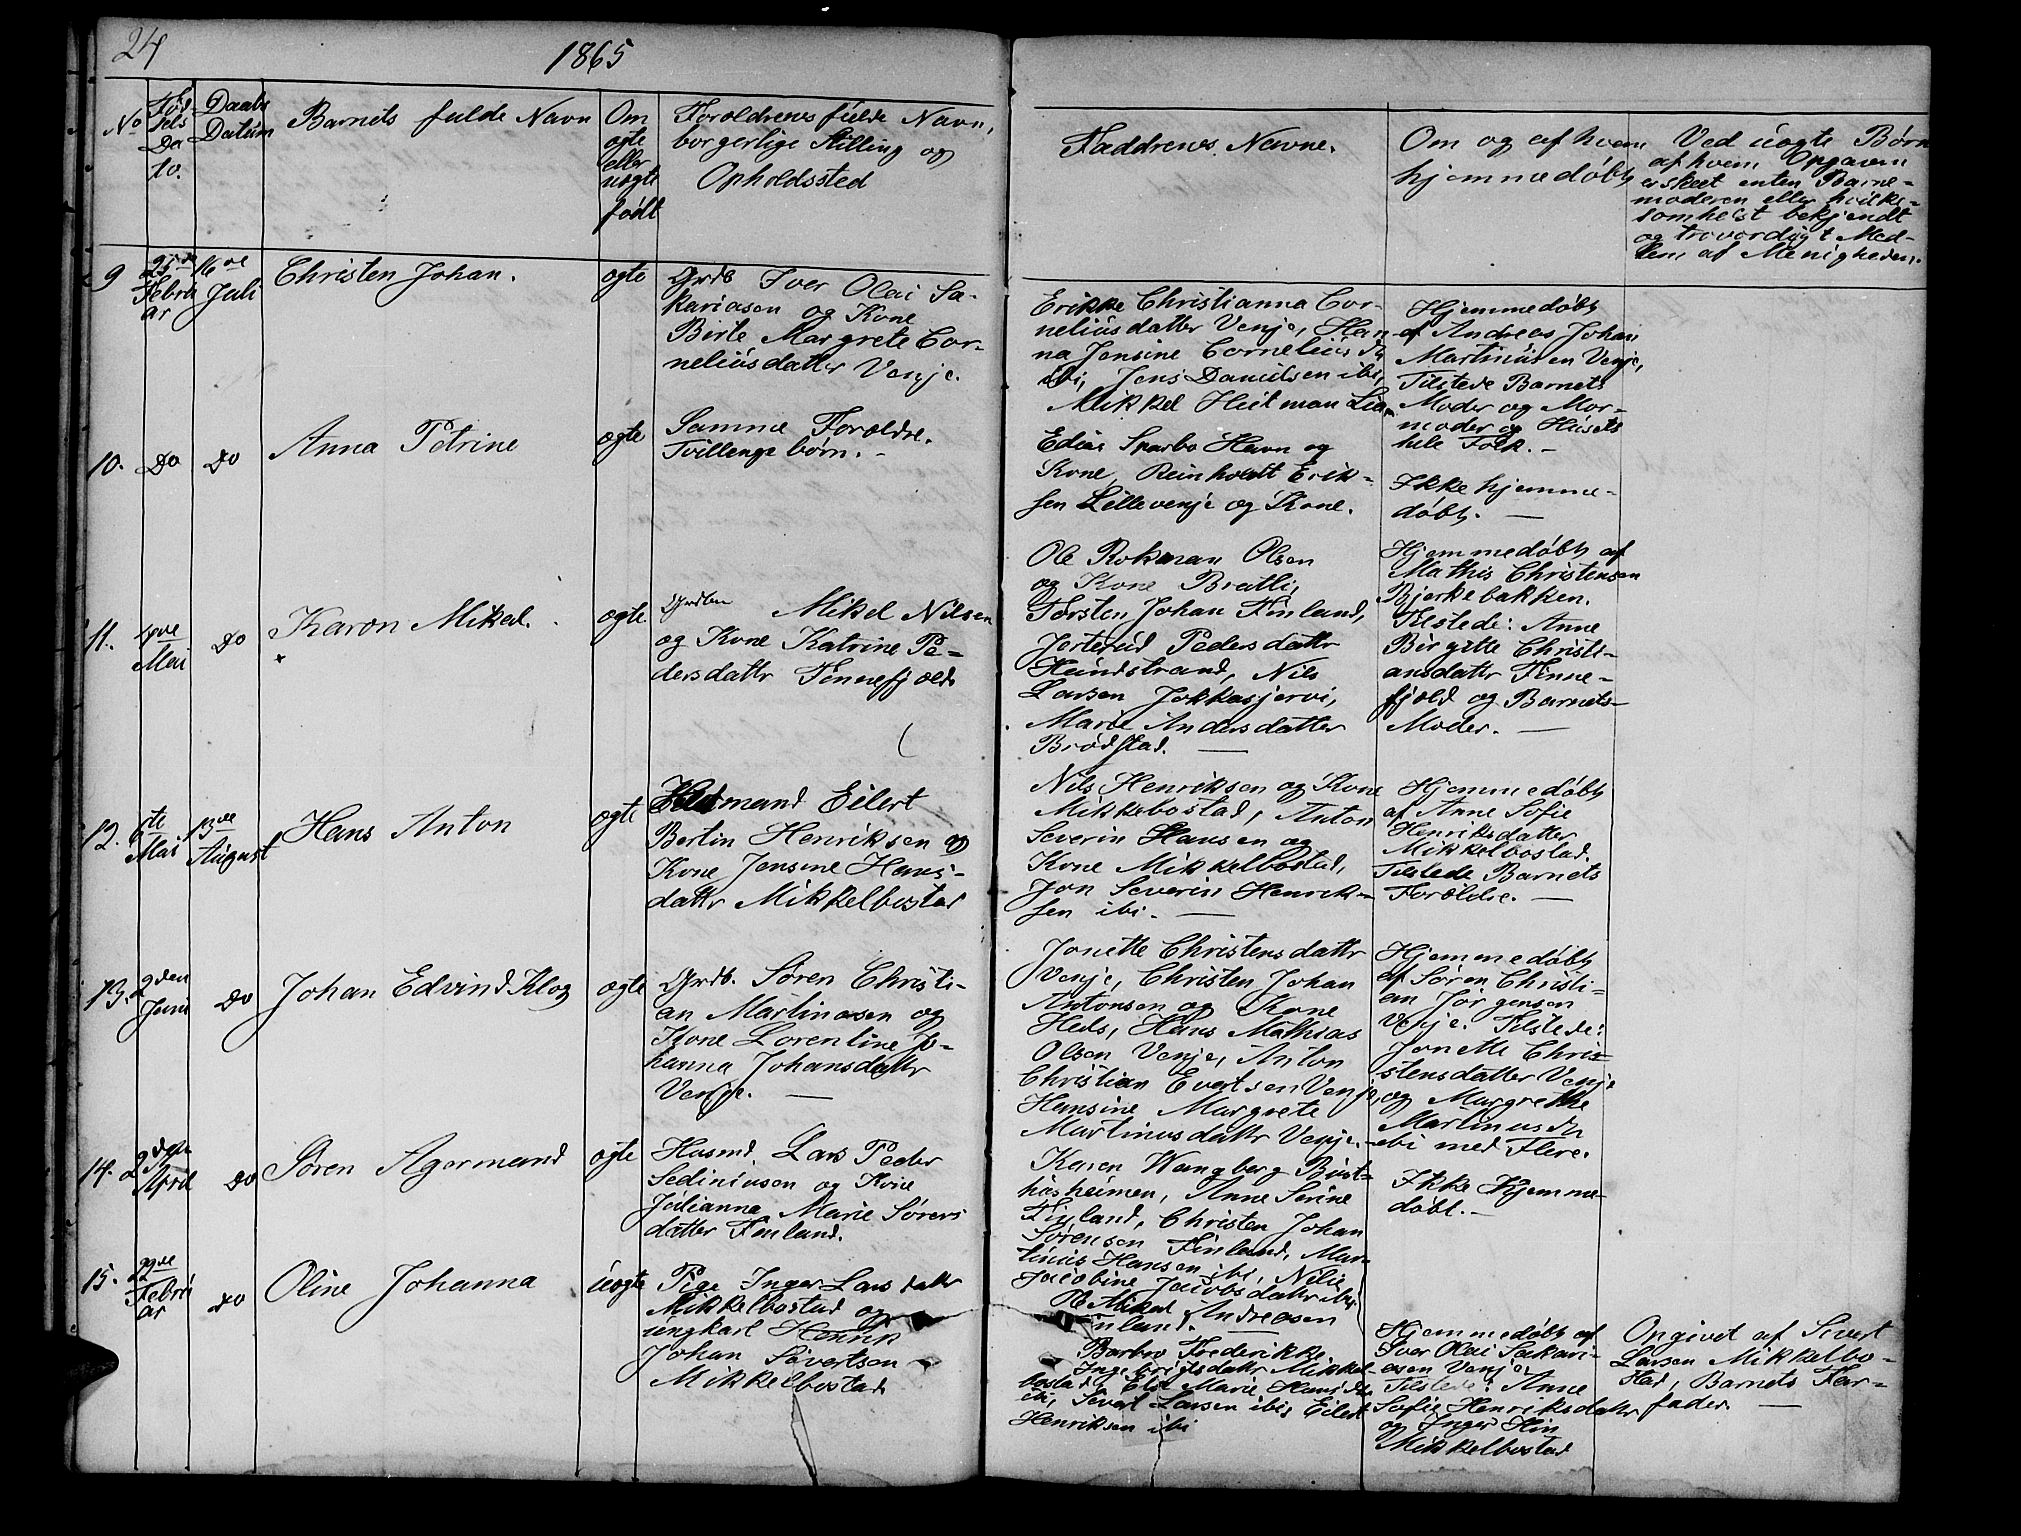 24
1865
No
Fød
sels
Da
to.
Daabs
Datum
Barnets fulde Navn
Om
ægte
eller
uægte
født
Forældrenes fulde Navn,
borgerlige Stilling og
Opholdssted
Faddrenes Navne.
Om og af hvem
hjemmedøbt
Ved uægte Børn
af hvem Opgaven
er skeet enten Barne-
moderen eller hvilke-
somhelst bekjendt
og troværdigt Med-
lem af Menigheden.
9
25de
Febru
ar
16de
Juli
Christen Johan.
ægte
Grdb Iver Olai Sa-
kariasen og Kone
Birte Margrete Cor-
neliusdatter Venje.
Erikke Christianna Cor-
neliusdatter Venje, Han
na Jensine Cornelius Dr
ibi, Jens Danielsen ibi,
Mikkel Heitman
Hjemmedøbt
af Andreas Johan
Martinusen Venje,
Tilstede Barnets
Moder og Mor-
moder og Husets
hele Folk. -
10.
Do
Do
Anna Petrine
ægte
Samme Forældre.
Tvillinge børn. -
Edias Sparbo Havn og
Kone, Reinholdt Erik-
sen Lillevenje og Kone.
Ikke hjemme-
døbt. -
11.
Mai
Do
Karen Mikal.
ægte
Grdbr Mikel Nilsen
og Kone Katrine Pe-
dersdattr Finnefjæld
Ole Rokman Olsen
og Kone Bratli,
Torsten Johan Finland,
Jertrud Pedersdattr
Hundstrand, Nils
Larsen Jokkasjervi,
Marie Andersdatter
Brødstad. -
Hjemmedøbt af
Mathis Christensen
Bjerkebakken.
Tilstede: Anne
Birgitte Christi-
ansdattr Finne-
fjæld og Barnets
Moder. -
12.
6te
Mai
13de
August
Hans Anton
ægte
Husmand Eilert
Bertin Henriksen og
Kone Jensine Hans-
dattr Mikkelbostad
Nils Henriksen og Kone
Mikkelbostad, Anton
Severin Hansen og
Kone Mikkelbostad,
Jon Severin Henrik-
sen ibi. -
Hjemmedøbt
af Anne Sofie
Henriksdatter
Mikkelbostad.
Tilstede Barnets
Forældre. -
13.
2den
Juni
Do
Johan Edvind Klog
ægte
Grdb. Søren Christi-
an Martinesen og
Kone Lorentine Jo-
hanna Johansdattr
Venje. -
Jonette Christensdattr
Venje, Christen Johan
Antonsen og Kone
Heds, Hans Mathias
Olsen Venje, Anton
Christian Evertsen Venje,
Hansine Margrete
Martinusdattr Venje. -
Hjemmedøbt
af Søren Christi-
an Jørgensen
Venje. Tilstede:
Jonette Chris-
stensdatter Venje
og Margrethe
Martinus Dr
ibi med Flere.
14.
2den
April
Do
Søren Agermand
ægte
Husmd. Lars Peder
Sediniusen og Kone
Julianna Marie Sørens
datter Finland.
Karen Wangberg
Anne Serine
Finland, Christen Johan
Sørensen Finland, Mar-
tinus Hansen ibi, Nilie
Jacobine Jacobsdattr ibi
Ole Mikal Andreasen
Finland.
Ikke Hjemme-
døbt. -
15.
22de
Febru
ar
Do
Oline Johanna
uægte
Pige Inger Lars datter
Mikkelbostad og
ungkarl Henrik
Johan Sivertsen
Mikkelbostad
Barbro Frederikke
Ingebrigtsdattr Mikkel-
bostad, Else Marie Hans Dr
ibi, Sivert Larsen ibi, Eilert
Henriksen ibi
Hjemmedøbt af
Iver Olai Sakari-
esen Venje
Tilstede: Anne
Sofie Henriksdattr
og Inger
Mikkelbostad
Opgivet af Sivert
Larsen Mikkelbo-
stad, Barnets Far-
fader. -